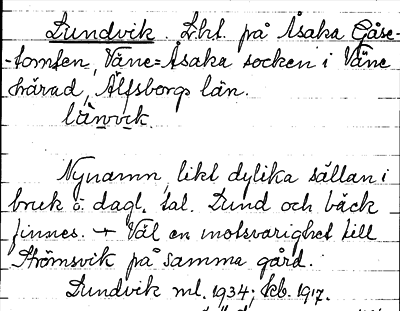 Lundvik. Lht. på Åsaka Gåse-
-tomten, Väne=Åsaka socken i Väne
härad, Älfsborgs län.
länvik.
Nynamn, likt dylika sällan i
bruk o. dagl. tal. Lund och bäck
finnes. Väl en motsvarighet till
Strömsvik på samma gård.
Lundvik ml. 1934; kb. 1917.